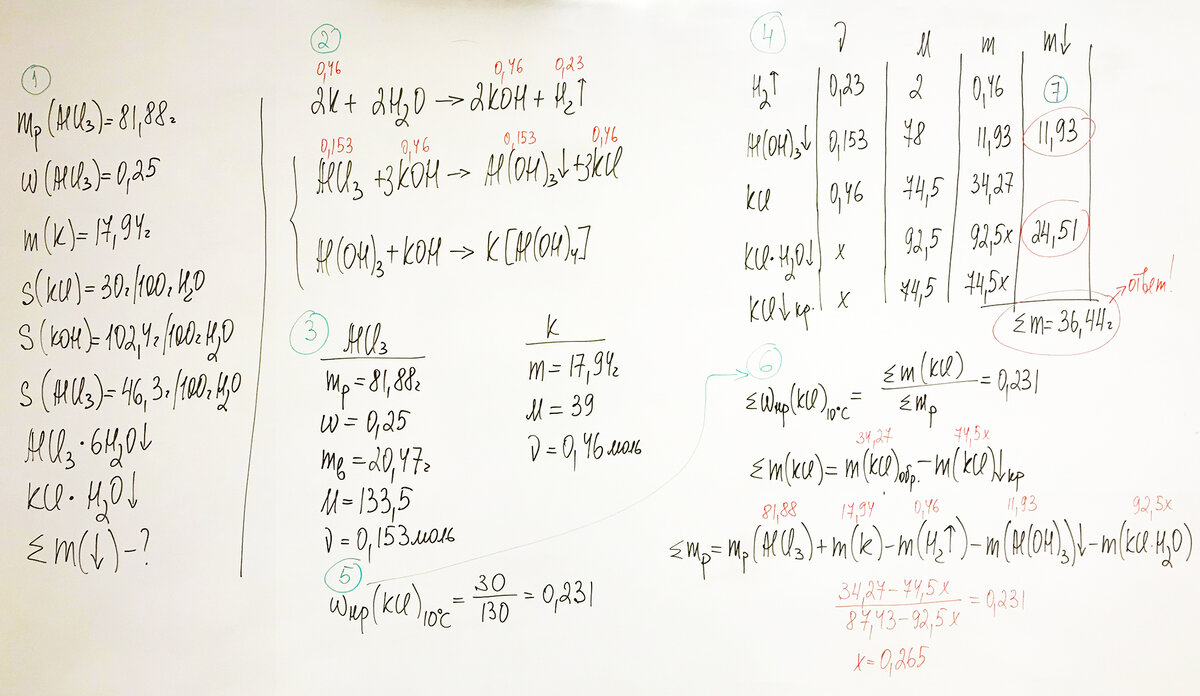 1
mр(AlCl₃)=81,88г
w(AlCl₃)=0,25
m(K)=17,94г
S(KCl)=30г/100гH₂O
S(KOH)=102,4г/100гH₂O
S(AlCl₃)=46,3г/100гH₂O
AlCl₃·6H₂O↓
KCl·H₂O↓
Σm(↓)-?
2
0,46 0,46 0,23
2K+2H₂O→2KOH+H₂↑
0,153 0,46 0,153 0,46
AlCl₃+3KOH→Al(OH)₃↓+3KCl
Al(OH)₃+KOH→K[Al(OH)₄]
3
AlCl₃
mр=81,88г
w=0,25
mв=20,47г
M=133,5
ν=0,153моль
K
m=17,94г
M=39
ν=0,46моль
5
wнр(KCl)10°C=30/130=0,231
4
ν M m m↓
H₂↑ 0,23 2 0,46 7
Al(OH)₃↓ 0,153 78 11,93 11,93
KCl 0,46 74,5 34,27
KCl·H₂O↓ x 92,5 92,5x 24,51
KCl↓кр. x 74,5 74,5x
Σm=36,44г
ответ!
6
Σwнр(KCl)10°C=Σm(KCl)/Σmр=0,231
34,27 74,5x
Σm(KCl)=m(KCl)обр.-m(KCl)↓кр
81,88 17,94 0,46 11,93 92,5x
Σmр=mр(AlCl₃)+m(K)-m(H₂↑)-m(Al(OH)₃)↓-m(KCl·H₂O)
34,27-74,5x/87,43-92,5x=0,231
x=0,265